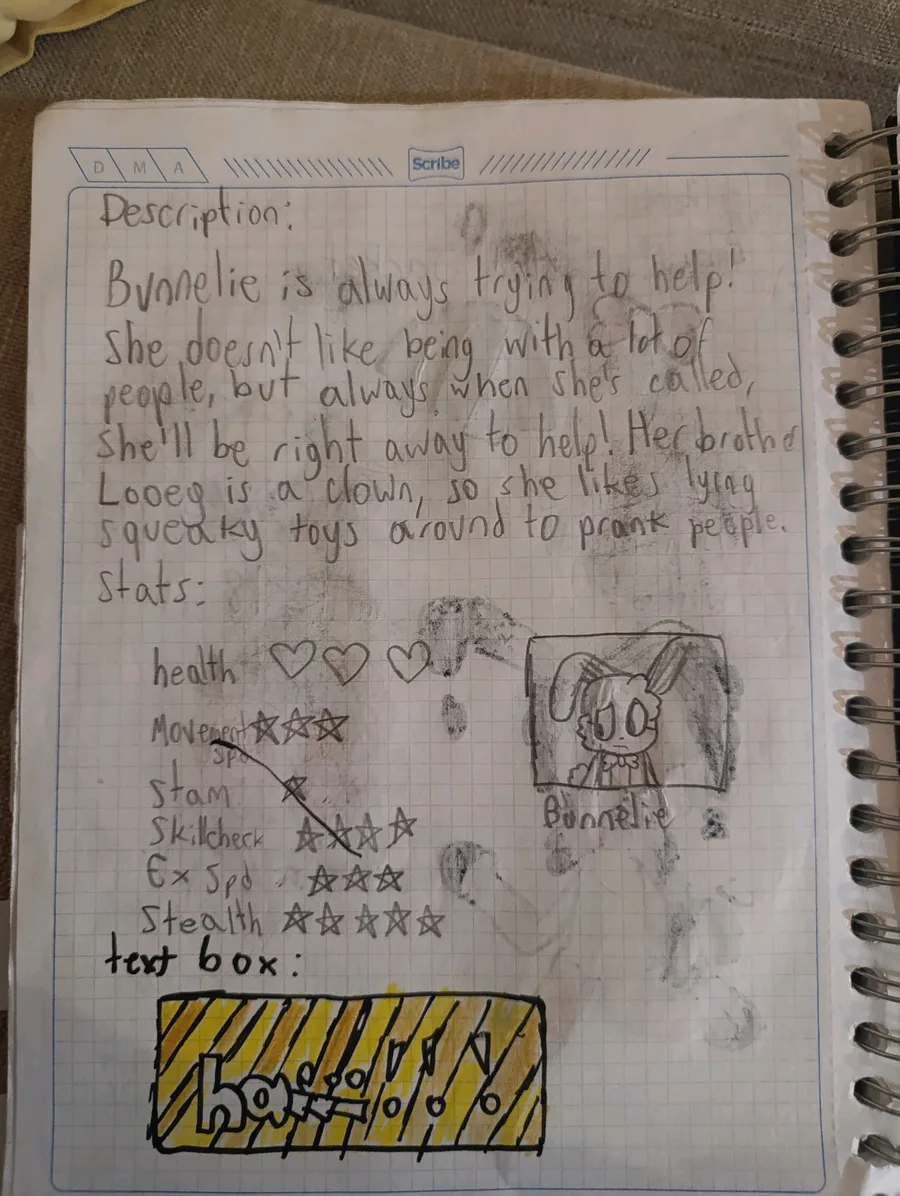 D M A
Scribe
Description:
Bunnelie is always trying to help!
She doesn't like being with a lot of
people, but always when she's called,
She'll be right away to help! Her brothe
Looeg is a clown, so she likes lying
squeaky toys around to prank people.
Stats:
health
Movement
Spd
Stam
Skillcheck
Ex Spd
Stealth
Bunnelie
text box:
haiii!!!